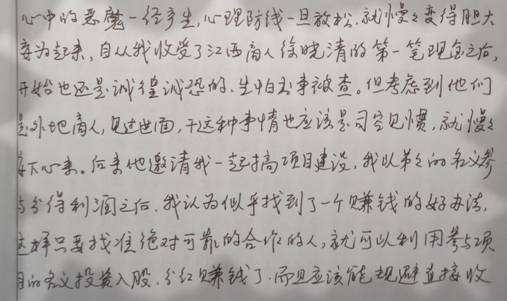 心中的恶魔一经产生,心理防线一旦放松,就慢慢变得胆大
妄为起来,自从我收受了江西商人徐晓清的第一笔现金之后,
开始也还是诚惶诚恐的,生怕出事被查。但考虑到他们
是外地商人,见过世面,干这种事情也应该是司空见惯,就慢慢
下心来。后来他邀请我一起搞项目建设,我以弟弟的名义参
与分得利润之后,我认为似乎找到了一个赚钱的好办法,
这样只要找准绝对可靠的合作的人,就可以利用参与项
目的名义投资入股,分红赚钱了,而且应该能规避直接收